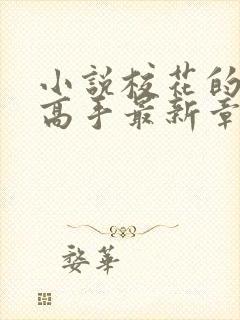 小说校花的
高手最新章
婺华